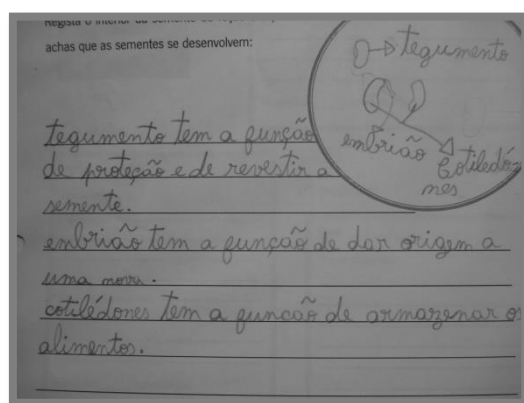 Regista o interior da semente do feijão
achas que as sementes se desenvolvem:
tegumento
embrião
Cotilédo
nes
tegumento tem a função
de proteção e de revestir a
semente.
embrião tem a função de dar origem a
uma nova.
cotilédones tem a função de armazenar os
alimentos.